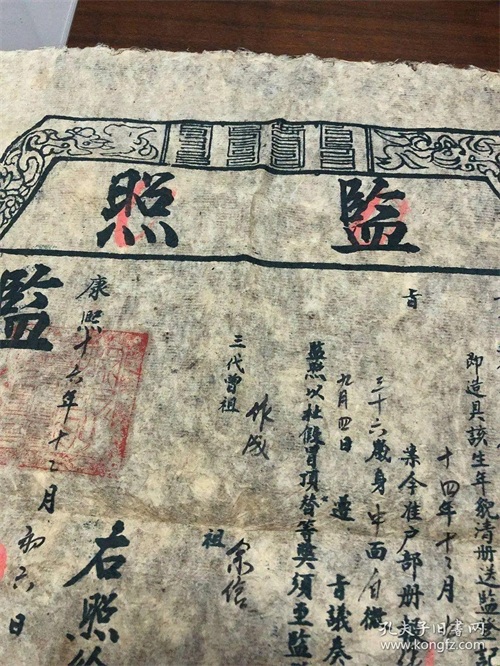 監照
即造具該生年貌清册送監
十四年十二月
旨
案今准户部册
三十六歲身中面白微
九月四日遵旨議奏
監照以杜假冒頂替等獘須至監
三代曾祖作成
祖宗信
右照
康熙十六年十二月初六日
監
孔夫子旧书网
kongfz.com